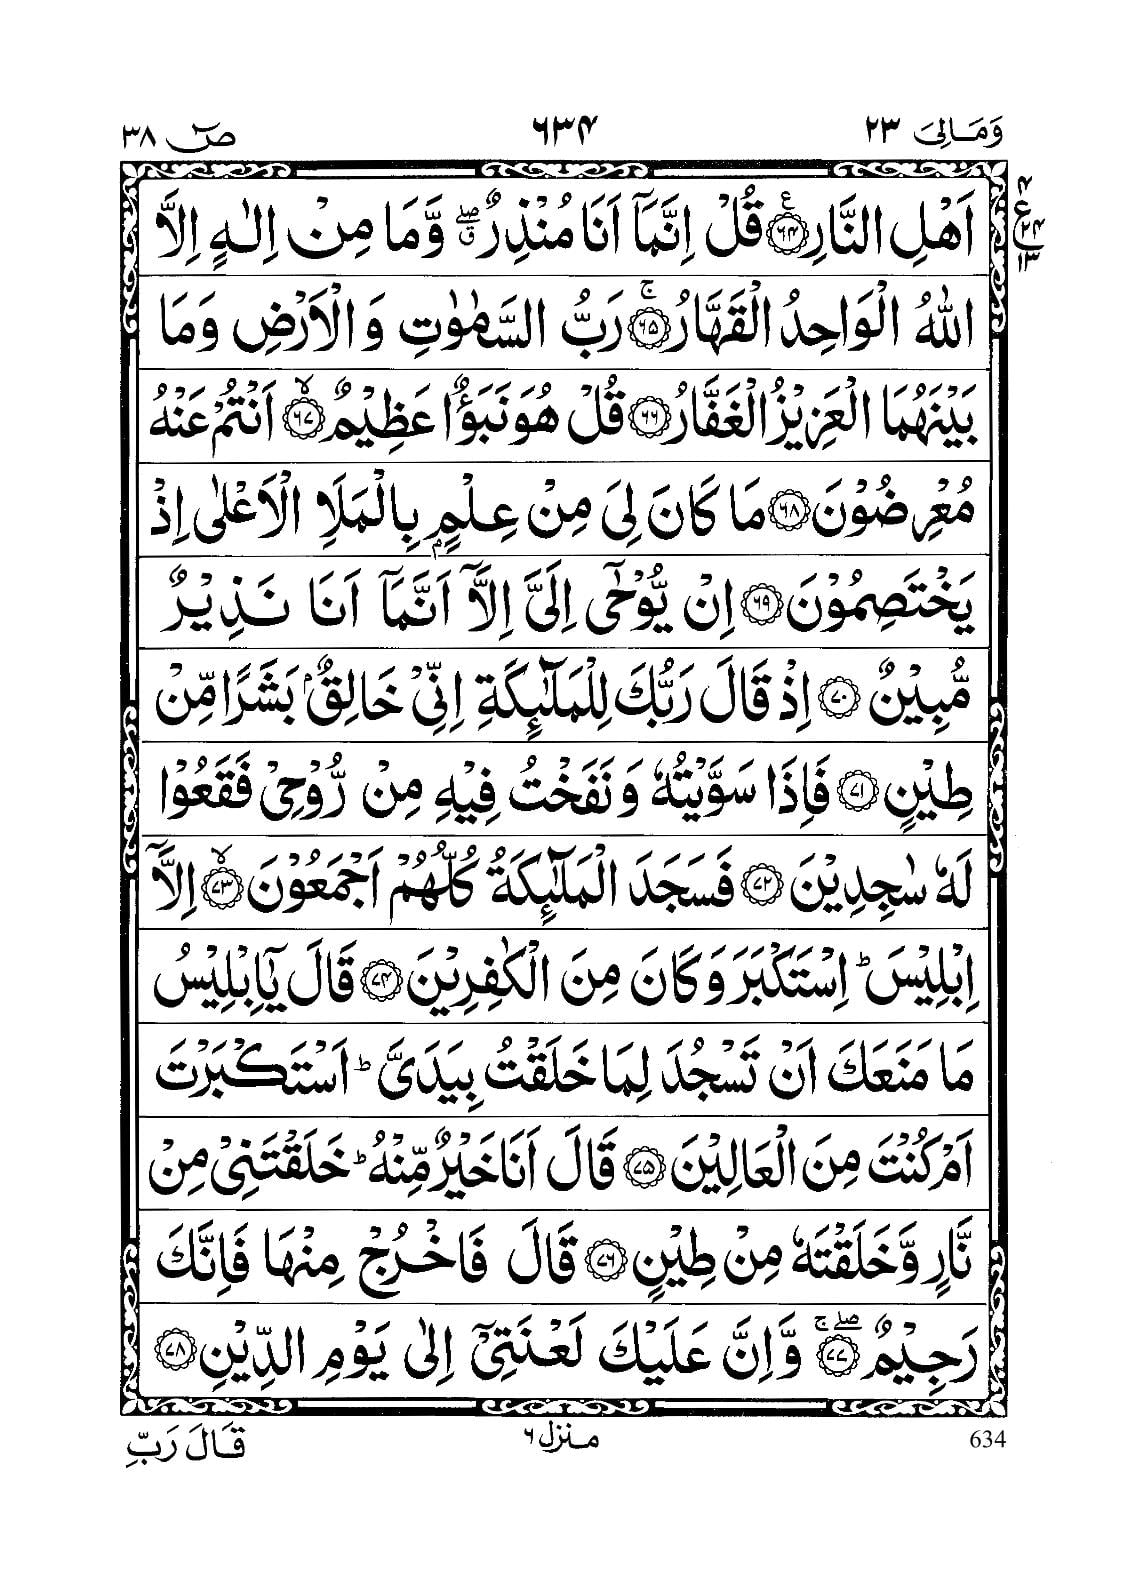 وَمَالِیَ ۲۳ ۶۳۴ صٓ ۳۸
۴ ع ۲۴ ۱۳
اَهْلِ النَّارِ ﴿۶۴﴾ۧ قُلْ اِنَّمَاۤ اَنَا مُنْذِرٌ ۖۗ وَّمَا مِنْ اِلٰهٍ اِلَّا
اللّٰهُ الْوَاحِدُ الْقَهَّارُ ﴿۶۵﴾ۚ رَبُّ السَّمٰوٰتِ وَالْاَرْضِ وَمَا
بَيْنَهُمَا الْعَزِيْزُ الْغَفَّارُ ﴿۶۶﴾ قُلْ هُوَ نَبَؤٌا عَظِيْمٌ ﴿۶۷﴾ۙ اَنْتُمْ عَنْهُ
مُعْرِضُوْنَ ﴿۶۸﴾ مَا كَانَ لِیَ مِنْ عِلْمٍۭ بِالْمَلَاِ الْاَعْلٰۤى اِذْ
يَخْتَصِمُوْنَ ﴿۶۹﴾ اِنْ يُّوْحٰۤى اِلَیَّ اِلَّاۤ اَنَّمَاۤ اَنَا نَذِيْرٌ
مُّبِيْنٌ ﴿۷۰﴾ اِذْ قَالَ رَبُّكَ لِلْمَلٰٓئِكَةِ اِنِّیْ خَالِقٌۢ بَشَرًا مِّنْ
طِيْنٍ ﴿۷۱﴾ فَاِذَا سَوَّيْتُهٗ وَنَفَخْتُ فِيْهِ مِنْ رُّوْحِیْ فَقَعُوْا
لَهٗ سٰجِدِيْنَ ﴿۷۲﴾ فَسَجَدَ الْمَلٰٓئِكَةُ كُلُّهُمْ اَجْمَعُوْنَ ﴿۷۳﴾ۙ اِلَّاۤ
اِبْلِيْسَ ؕ اِسْتَكْبَرَ وَكَانَ مِنَ الْكٰفِرِيْنَ ﴿۷۴﴾ قَالَ يٰۤاِبْلِيْسُ
مَا مَنَعَكَ اَنْ تَسْجُدَ لِمَا خَلَقْتُ بِيَدَیَّ ؕ اَسْتَكْبَرْتَ
اَمْ كُنْتَ مِنَ الْعَالِيْنَ ﴿۷۵﴾ قَالَ اَنَا خَيْرٌ مِّنْهُ ؕ خَلَقْتَنِیْ مِنْ
نَّارٍ وَّخَلَقْتَهٗ مِنْ طِيْنٍ ﴿۷۶﴾ قَالَ فَاخْرُجْ مِنْهَا فَاِنَّكَ
رَجِيْمٌ ﴿۷۷﴾ۖۚ وَّاِنَّ عَلَيْكَ لَعْنَتِیْۤ اِلٰى يَوْمِ الدِّيْنِ ﴿۷۸﴾
634 منزل ۶ قَالَ رَبِّ